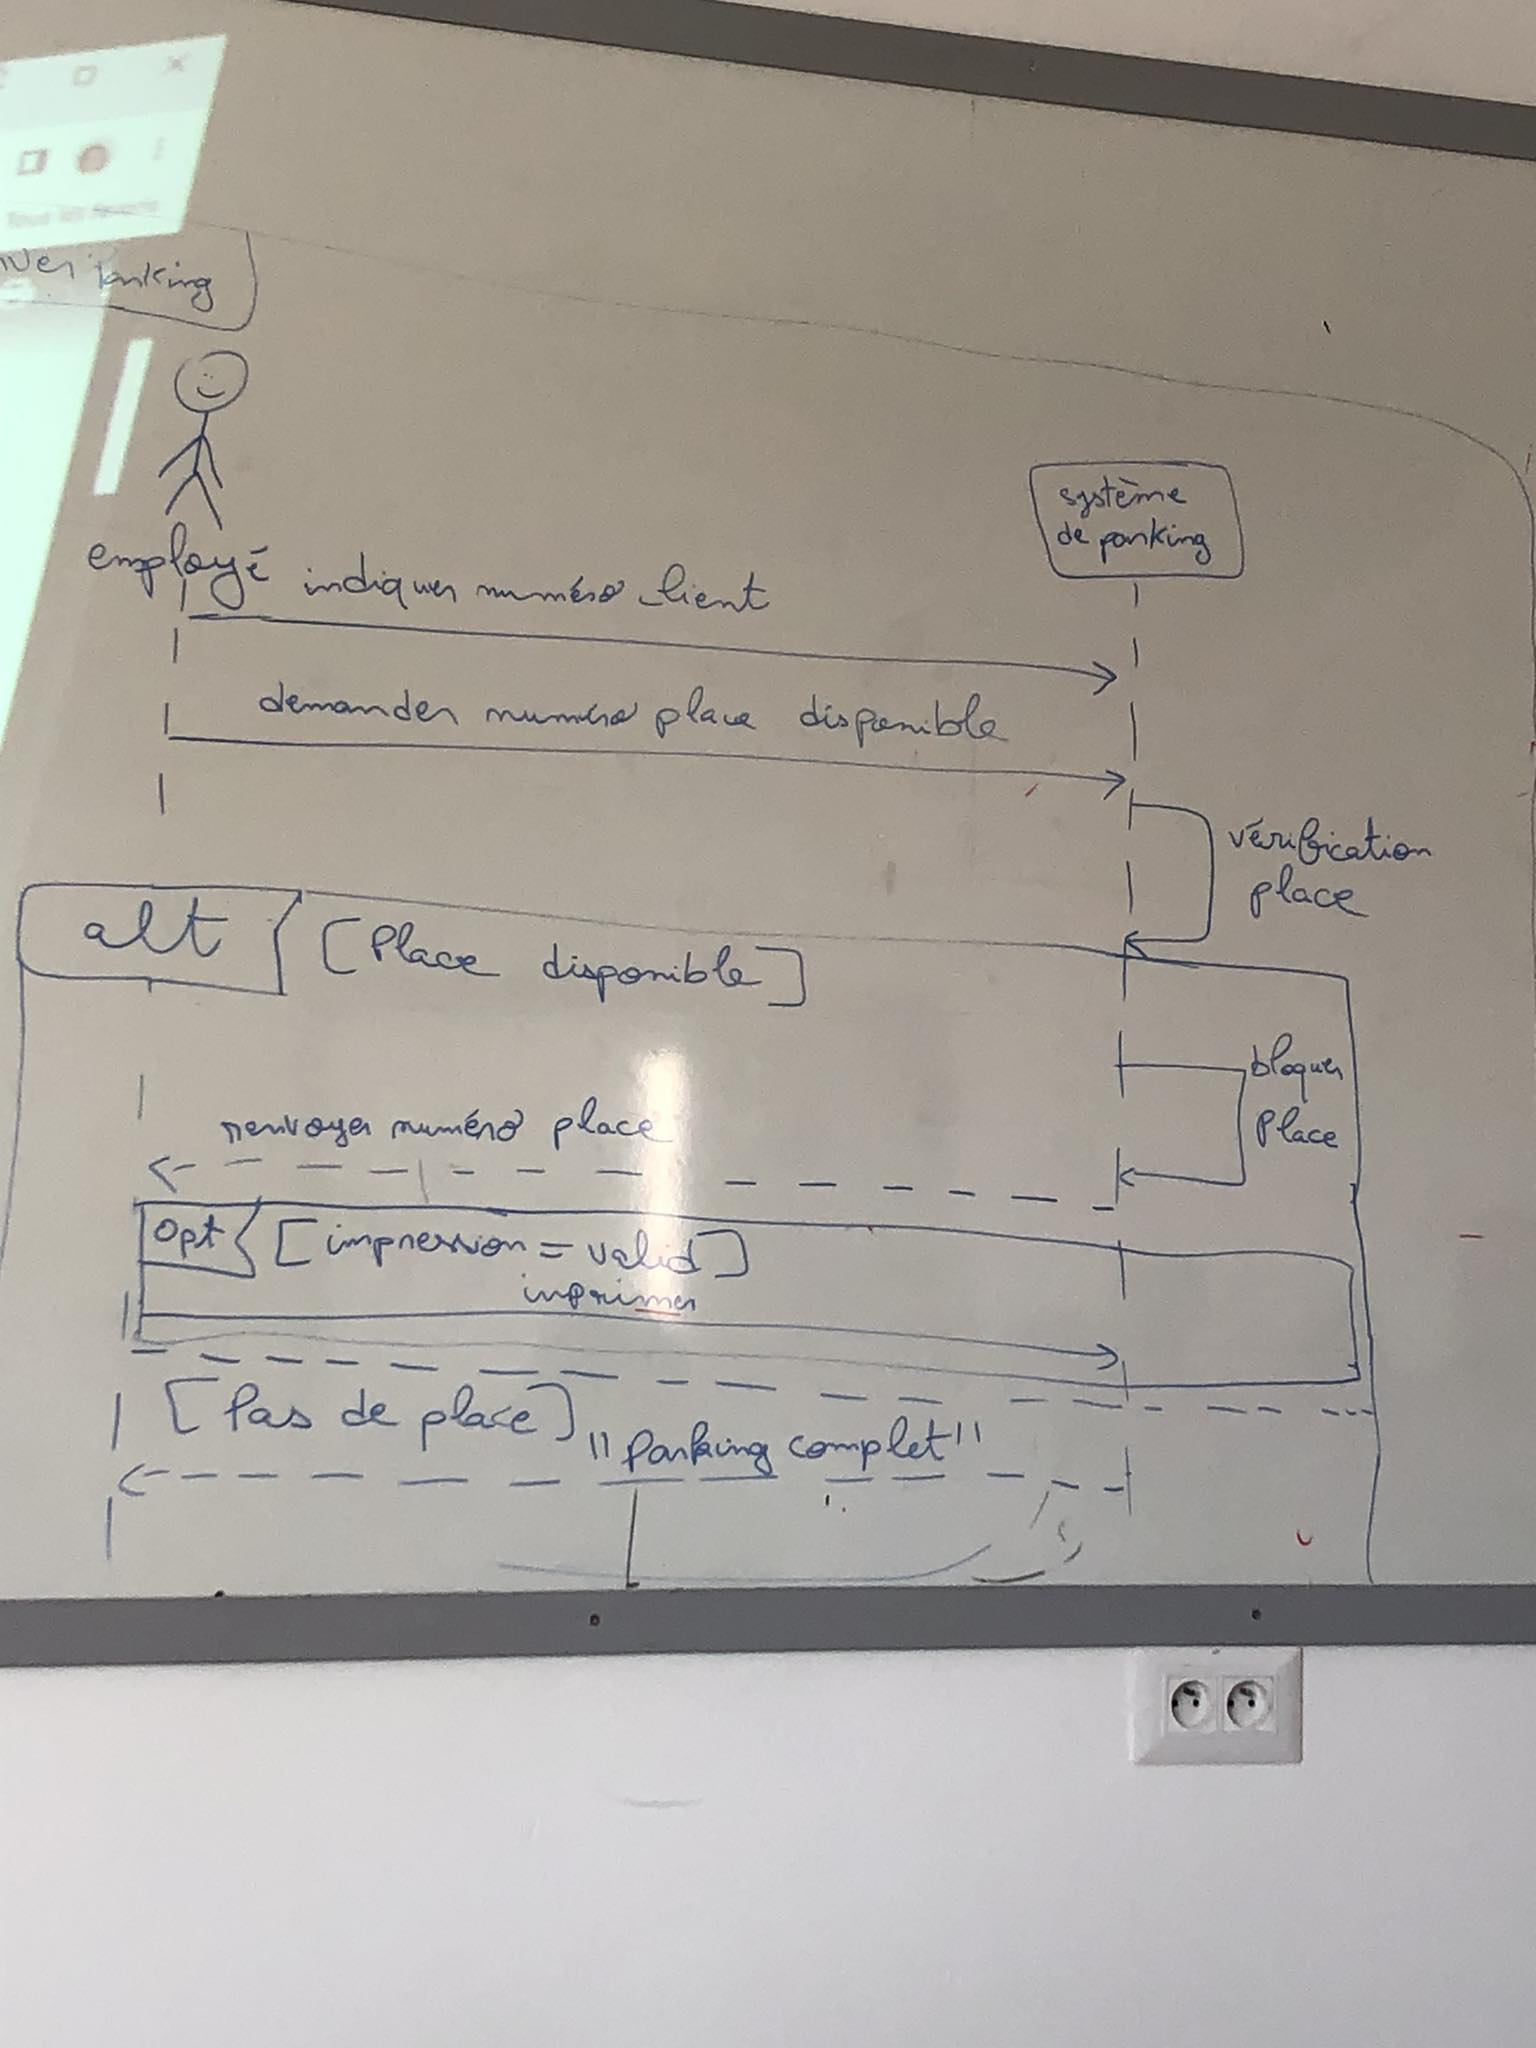 Tous les favoris
parking
employé
système
de parking
indiquer numéro lient
demander numéro place disponible
vérification
place
alt [Place disponible]
bloquer
Place
renvoyer numéro place
opt [impression = valid]
imprimer
[Pas de place]
"Parking complet"